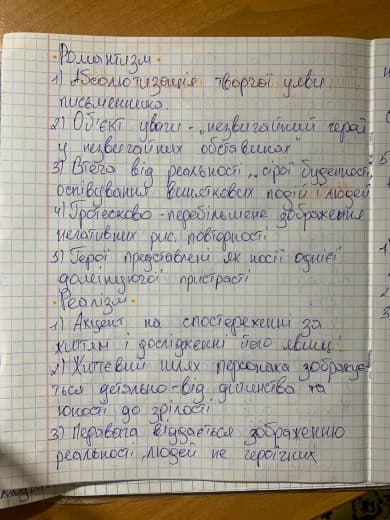 • Романтизм •
1) Абсолютизація творчої уяви
письменника.
2) Об'єкт уваги - „незвичайний герой
у незвичайних обставинах"
3) Втеча від реальності, „сірої буденності,
оспівування виняткових подій і людей
4) Гротесково - перебільшене зображення
негативних рис, повторності
5) Герої представлені як носії однієї
домінуючої пристрасті
• Реалізм •
1) Акцент на спостереженні за
життям і дослідженні його явищ
2) Життєвий шлях персонажа зображує-
ться детально - від дитинства та
юності до зрілості
3) Перевага віддається зображенню
реальності, людей не героїчних